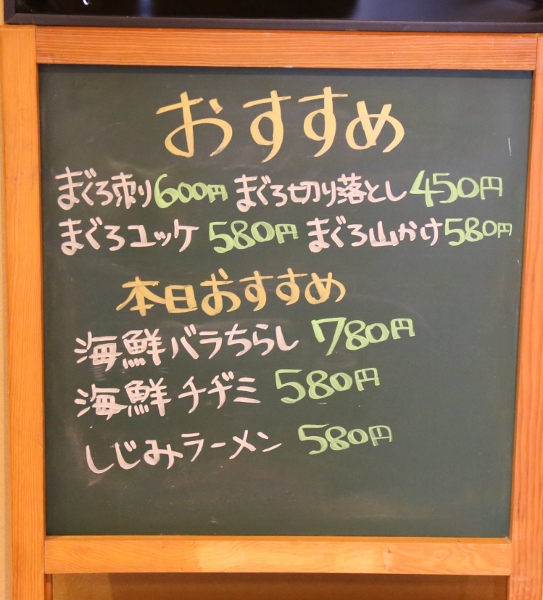 おすすめ
まぐろ刺り600円 まぐろ切り落とし450円
まぐろユッケ 580円 まぐろ山かけ580円
本日おすすめ
海鮮バラちらし 780円
海鮮チヂミ 580円
しじみラーメン 580円